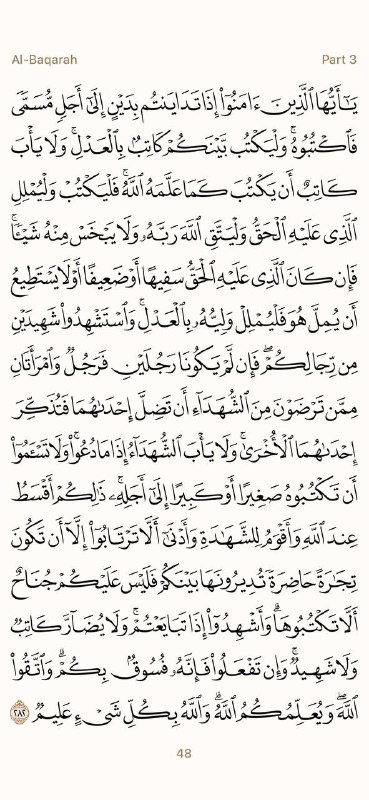 Al-Baqarah
Part 3
يَـٰٓأَيُّهَا ٱلَّذِينَ ءَامَنُوٓا۟ إِذَا تَدَايَنتُم بِدَيْنٍ إِلَىٰٓ أَجَلٍ مُّسَمًّى
فَٱكْتُبُوهُ ۚ وَلْيَكْتُب بَّيْنَكُمْ كَاتِبٌۢ بِٱلْعَدْلِ ۚ وَلَا يَأْبَ
كَاتِبٌ أَن يَكْتُبَ كَمَا عَلَّمَهُ ٱللَّهُ ۚ فَلْيَكْتُبْ وَلْيُمْلِلِ
ٱلَّذِى عَلَيْهِ ٱلْحَقُّ وَلْيَتَّقِ ٱللَّهَ رَبَّهُۥ وَلَا يَبْخَسْ مِنْهُ شَيْـًٔا ۚ
فَإِن كَانَ ٱلَّذِى عَلَيْهِ ٱلْحَقُّ سَفِيهًا أَوْ ضَعِيفًا أَوْ لَا يَسْتَطِيعُ
أَن يُمِلَّ هُوَ فَلْيُمْلِلْ وَلِيُّهُۥ بِٱلْعَدْلِ ۚ وَٱسْتَشْهِدُوا۟ شَهِيدَيْنِ
مِن رِّجَالِكُمْ ۖ فَإِن لَّمْ يَكُونَا رَجُلَيْنِ فَرَجُلٌ وَٱمْرَأَتَانِ
مِمَّن تَرْضَوْنَ مِنَ ٱلشُّهَدَآءِ أَن تَضِلَّ إِحْدَىٰهُمَا فَتُذَكِّرَ
إِحْدَىٰهُمَا ٱلْأُخْرَىٰ ۚ وَلَا يَأْبَ ٱلشُّهَدَآءُ إِذَا مَا دُعُوا۟ ۚ وَلَا تَسْـَٔمُوٓا۟
أَن تَكْتُبُوهُ صَغِيرًا أَوْ كَبِيرًا إِلَىٰٓ أَجَلِهِۦ ۚ ذَٰلِكُمْ أَقْسَطُ
عِندَ ٱللَّهِ وَأَقْوَمُ لِلشَّهَـٰدَةِ وَأَدْنَىٰٓ أَلَّا تَرْتَابُوٓا۟ ۖ إِلَّآ أَن تَكُونَ
تِجَـٰرَةً حَاضِرَةً تُدِيرُونَهَا بَيْنَكُمْ فَلَيْسَ عَلَيْكُمْ جُنَاحٌ
أَلَّا تَكْتُبُوهَا ۗ وَأَشْهِدُوٓا۟ إِذَا تَبَايَعْتُمْ ۚ وَلَا يُضَآرَّ كَاتِبٌ
وَلَا شَهِيدٌ ۚ وَإِن تَفْعَلُوا۟ فَإِنَّهُۥ فُسُوقٌۢ بِكُمْ ۗ وَٱتَّقُوا۟
ٱللَّهَ ۖ وَيُعَلِّمُكُمُ ٱللَّهُ ۗ وَٱللَّهُ بِكُلِّ شَىْءٍ عَلِيمٌ ٢٨٢
48